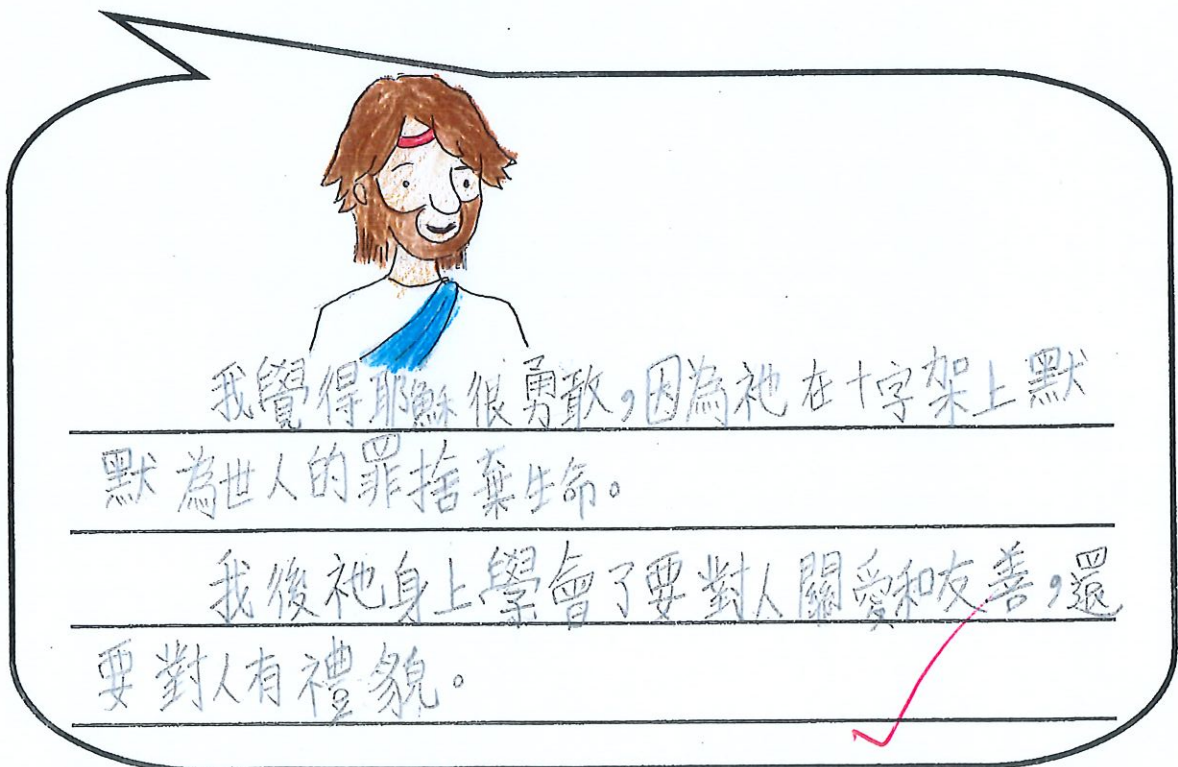 我覺得耶穌很勇敢，因為祂在十字架上默
默為世人的罪捨棄生命。
我後祂身上學會了要對人關愛和友善，還
要對人有禮貌。